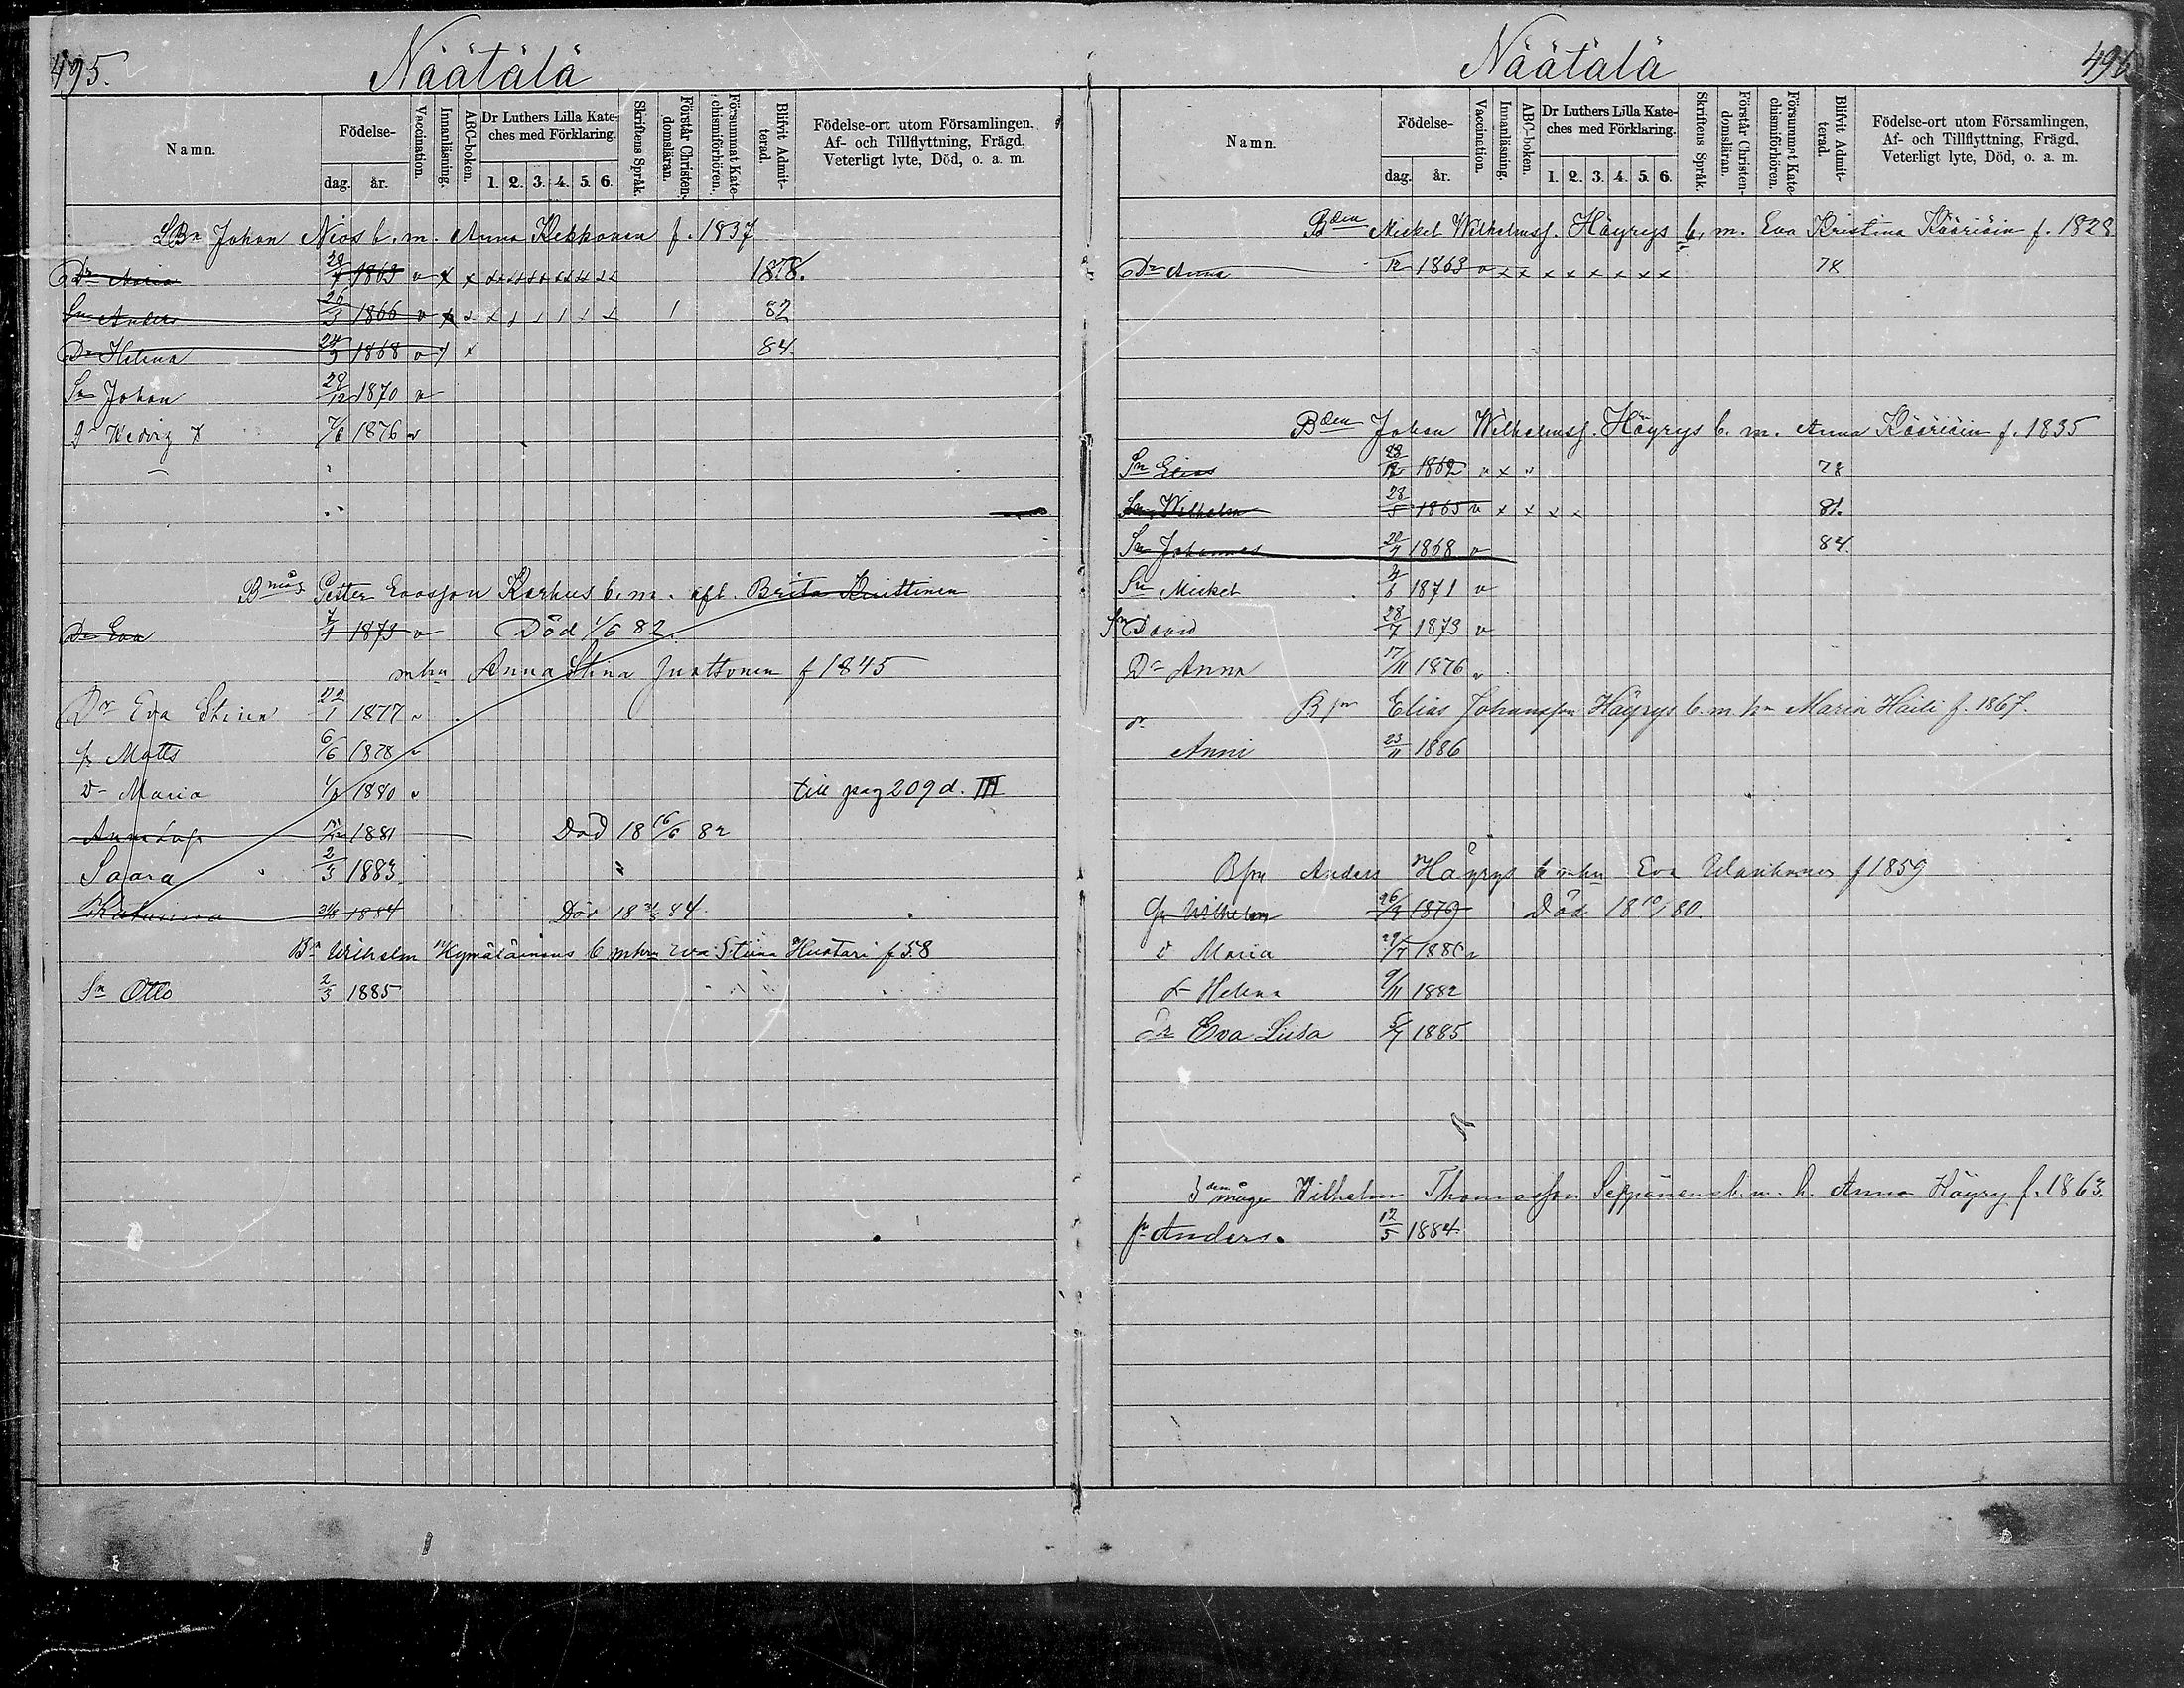 495.
Näätälä
Namn.
Födelse-
dag. år.
Vaccination.
Innanläsning.
ABC-boken.
Dr Luthers Lilla Kate-
ches med Förklaring.
1. 2. 3. 4. 5. 6.
Skriftens Språk.
Förstår Christen-
domsläran.
Försummat Kate-
chismiförhören.
Blifvit Admit-
terad.
Födelse-ort utom Församlingen,
Af- och Tillflyttning, Frägd,
Veterligt lyte, Död, o. a. m.
Johan Nios b. m. Anna Kekkonen f. 1837
Dr Maria 1863 v x x 1878.
Sn Anders 26/3 1866 v x 1 82
Dr Helena 24/9 1868 v x 84.
Sn Johan 28/12 1870 v
Dr Hedvig 1876 v
Bmåg Petter Evasson Karhus b. m. afl. Brita Kuittinen
Dr Eva 1873 v Död 1/6 82.
mhu Anna Stina Junttonen f 1845
Dr Eva Stina 22/1 1877 v
Matts 6/6 1878 v
Dr Maria 1880 v till pag 209 d. III
1881 Död 18 16/6 82
Saara 2/3 1883
Katarina 1884 Död 18 84.
Bn Wilhelm Kymäläinens b mhu Eva Stiina Hustari f 58
Sn Otto 2/3 1885
Näätälä
496
Namn.
Födelse-
dag. år.
Vaccination.
Innanläsning.
ABC-boken.
Dr Luthers Lilla Kate-
ches med Förklaring.
1. 2. 3. 4. 5. 6.
Skriftens Språk.
Förstår Christen-
domsläran.
Försummat Kate-
chismiförhören.
Blifvit Admit-
terad.
Födelse-ort utom Församlingen,
Af- och Tillflyttning, Frägd,
Veterligt lyte, Död, o. a. m.
Bden Mickel Wilhelmss. Höyrys b. m. Eva Kristina Kääriäin f. 1828
Dr Anna 1863 v x x x x x x x x 78
Bden Johan Wilhelmss. Höyrys b. m. Anna Kääriäin f. 1835
Sn Elias 28/12 1862 v x 78
Sn Wilhelm 28/5 1865 v x x x x 81.
Sn Johannes 1868 v 84
Sn Mickel 1871 v
Sn David 28/7 1873 v
Dr Anna 17/11 1876 v
Bsn Elias Johansson Häyrys b. m. hu Maria Haili f. 1867.
dr Anni 23/11 1886
Bsn Anders Häyrys b mhu Eva f 1859
Wilhelm 26/9 1879 Död 18 80.
d Maria 188
dr Helena 9/11 1882
Dr Eva Liisa 1885
måge Wilhelm Thomasson Seppänens b. m. h. Anna Höyry f. 1863.
sn Anders. 12/5 1884